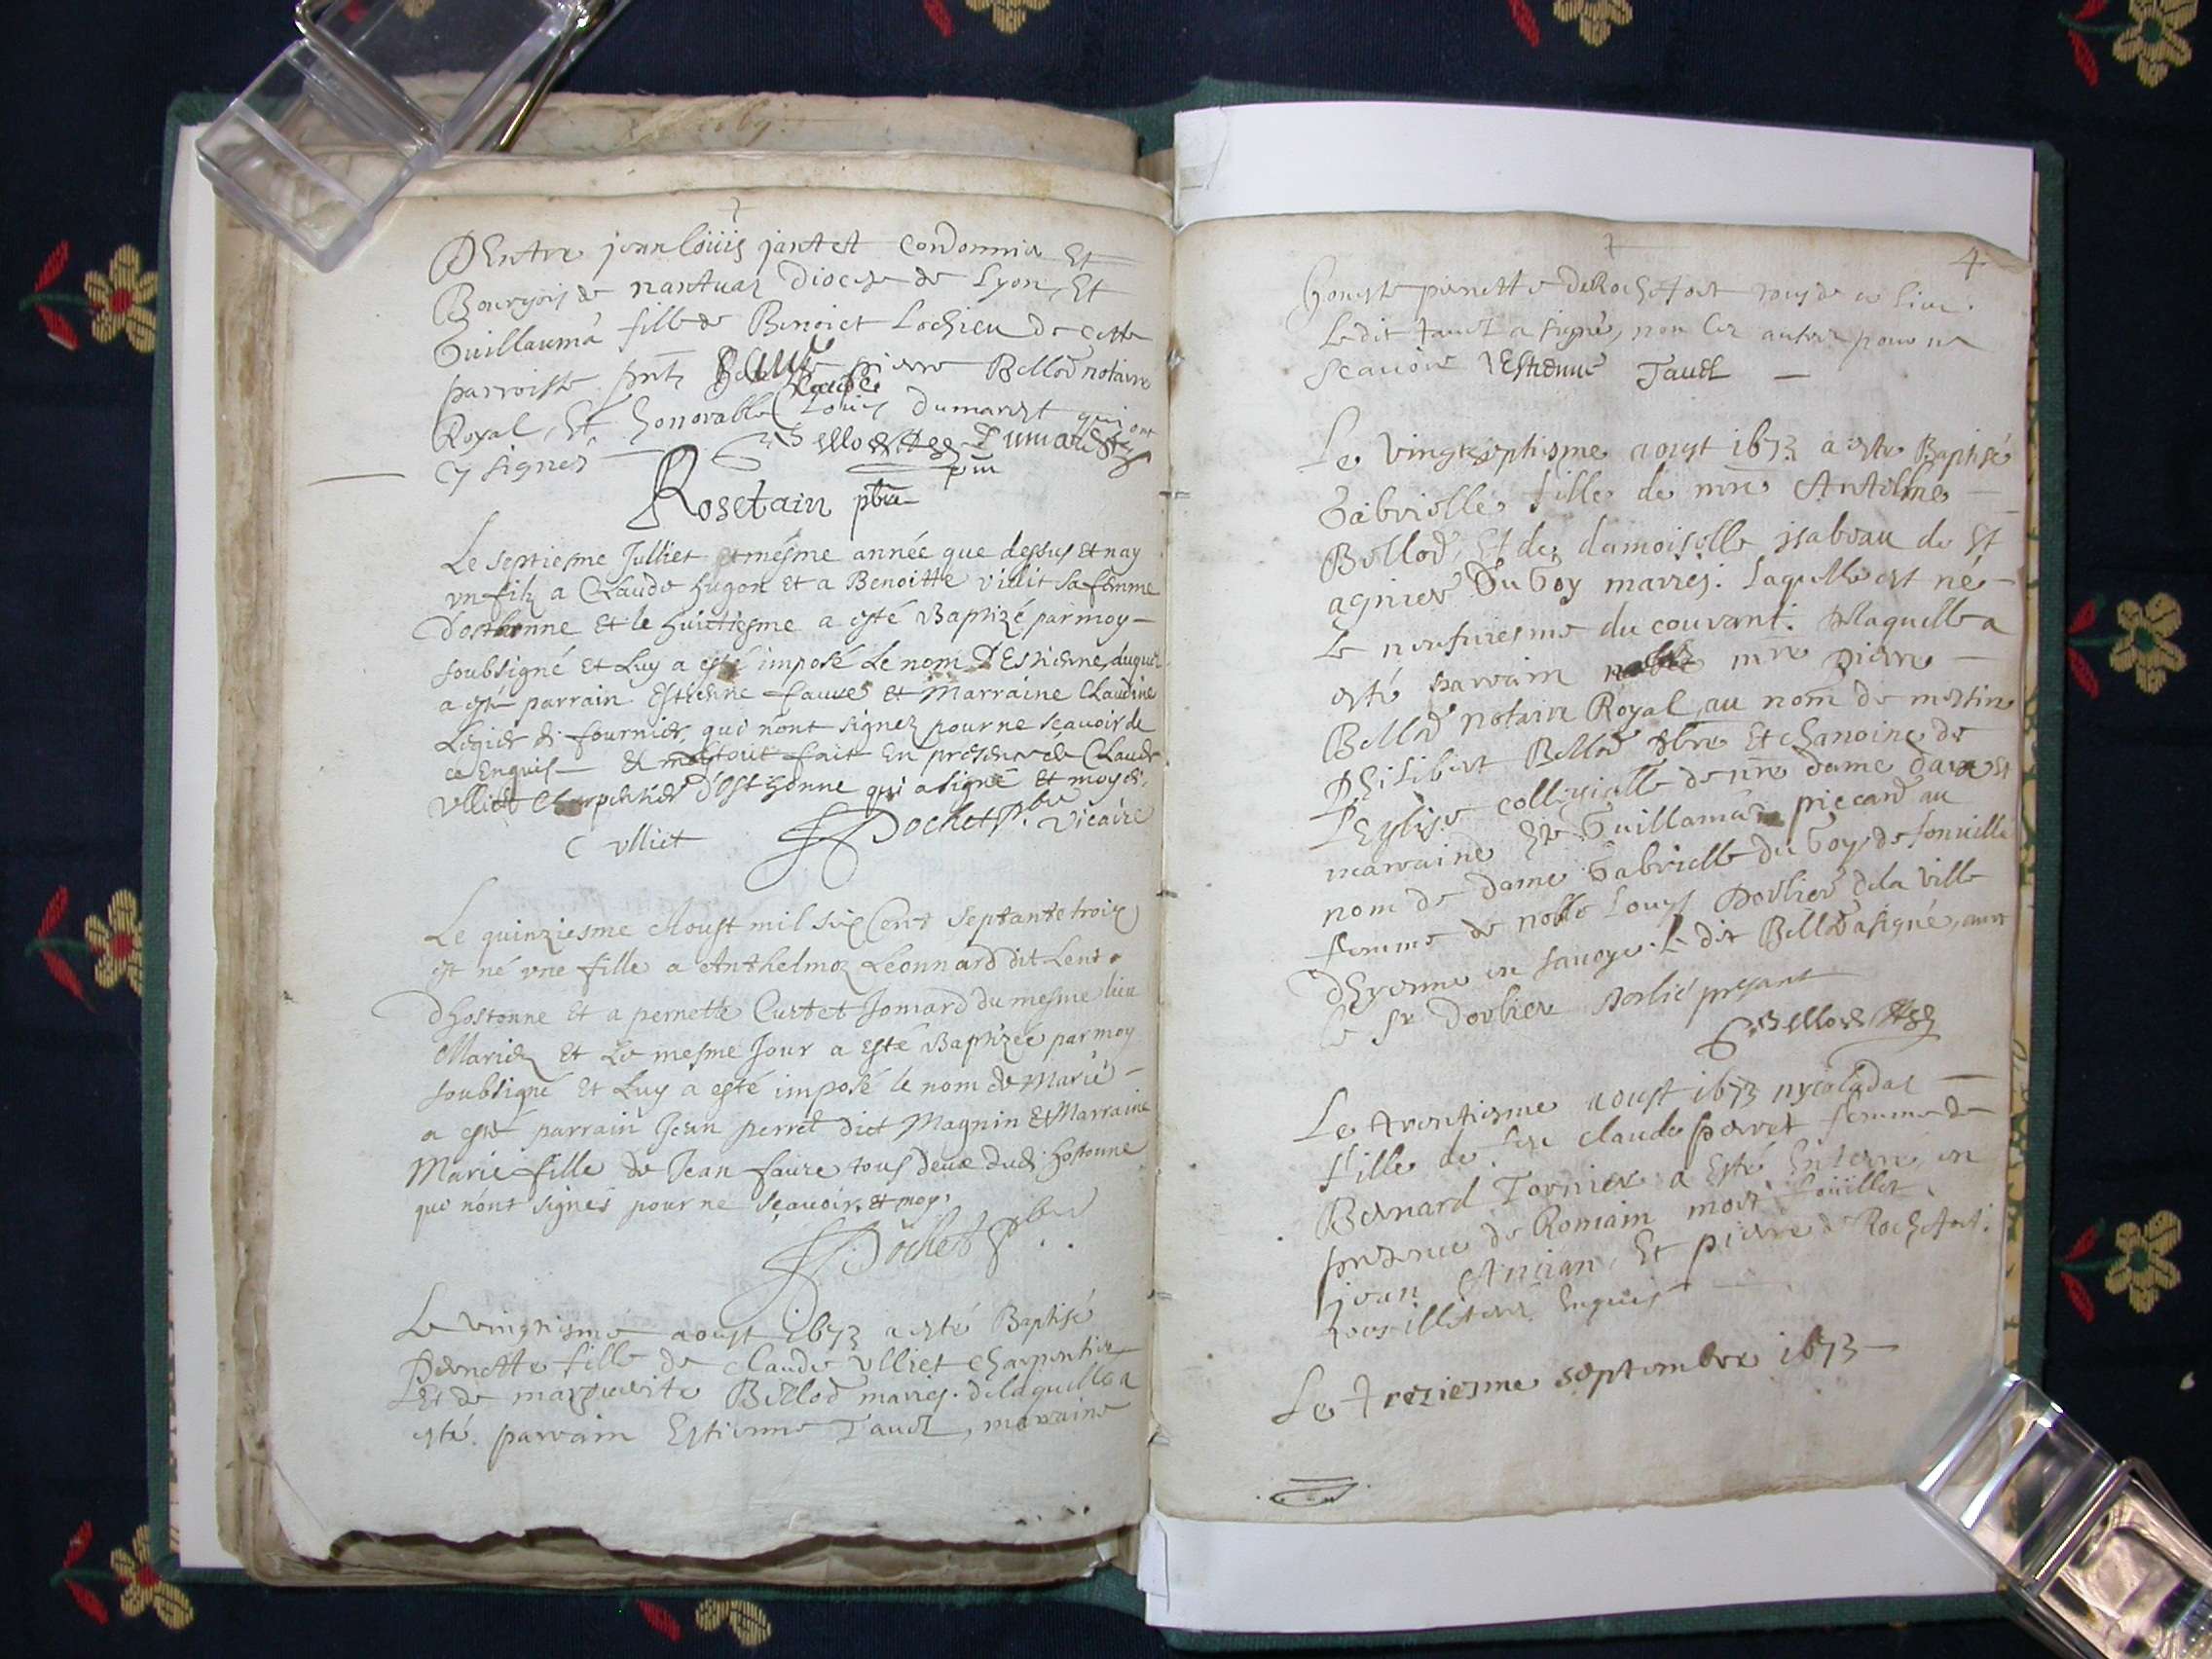 D'Entre jean louis jantet Cordonnier Et
Bourgois de nantuaz Diocese de Lyon, Et
Guillauma fille de Benoict Lochieu de cette
parroisse. pntz pierre Bellod notaire
Royal, Et honorable Louis dumarest qui ont
cy signés Bellod Dumarest
pnt
Rosetain pbre
Le septiesme Julliet et mesme année que dessus est nay
un filz a Claude hugon et a Benoitte vullit sa femme
d'osthonne Et le huictiesme a esté Baptizé par moy
soubsigné et Luy a esté imposé Le nom d'Estienne, duquel
a esté parrain Esthenne faure et Marraine Claudine
Legier de fournier, qui n'ont signez pour ne sçavoir de
ce Enquis – Et fait En presence de Claude
Ulliet Charpentier d'osthonne qui a signé et moy
C ulliet Dochet Pbre vicaire
Le quinziesme Aoust mil six Cent Septante troiz
est né une fille a Anthelmoz Leonnard dit Lent
dhostonne Et a pernette Curtet Jomard du mesme lieu
Mariez Et Le mesme Jour a Esté Baptizée par moy
soubsigné Et Luy a esté imposé le nom de Marie
a esté parrain Jean perret dict Magnin Et Marraine
Marie fille de Jean faure tous deux dud. hostonne
qui n'ont signés pour ne sçavoir, et moy,
Dochet Pbre
Le vingtiesme aoust 1673 a esté Baptisé
Pernette fille de claude ulliet charpentier
Et de marguerite Bellod mariez. de laquelle a
esté parrain Estienne Tavel, maraine
4
honeste pernette de Rochefort tous de ce lieu.
Ledit tavel a signé, non les autres pour ne
sçavoir Estienne Tavel —
Le vingtseptiesme aoust 1673 a este Baptisé
Gabrielle fille de mre Antelme
Bellod, Et de damoiselle isabeau de st
agnier du Goy mariez. laquelle est né
Le neufviesme du couvant. De laquelle a
esté parrain mre pierre
Bellod notaire Royal, au nom de messire
Philibert Bellod pbre Et chanoine de
L'Eglise collegialle de nre dame
maraine Guillama au
nom de dame Gabrielle du Goy de Jonville
femme de noble Louys Dorlier de la ville
d'Eyenne en savoye. Le dit Bellod a signé, avec
le sr dorlier present
Bellod
Le trentiesme aoust 1673
fille de feu claude perret femme de
Bernard Tornier a Esté Enterré, en
presence de Romain
jean Ancian, Et pierre de Rochefort.
tous illiterez Enquis
Le treziesme septembre 1673